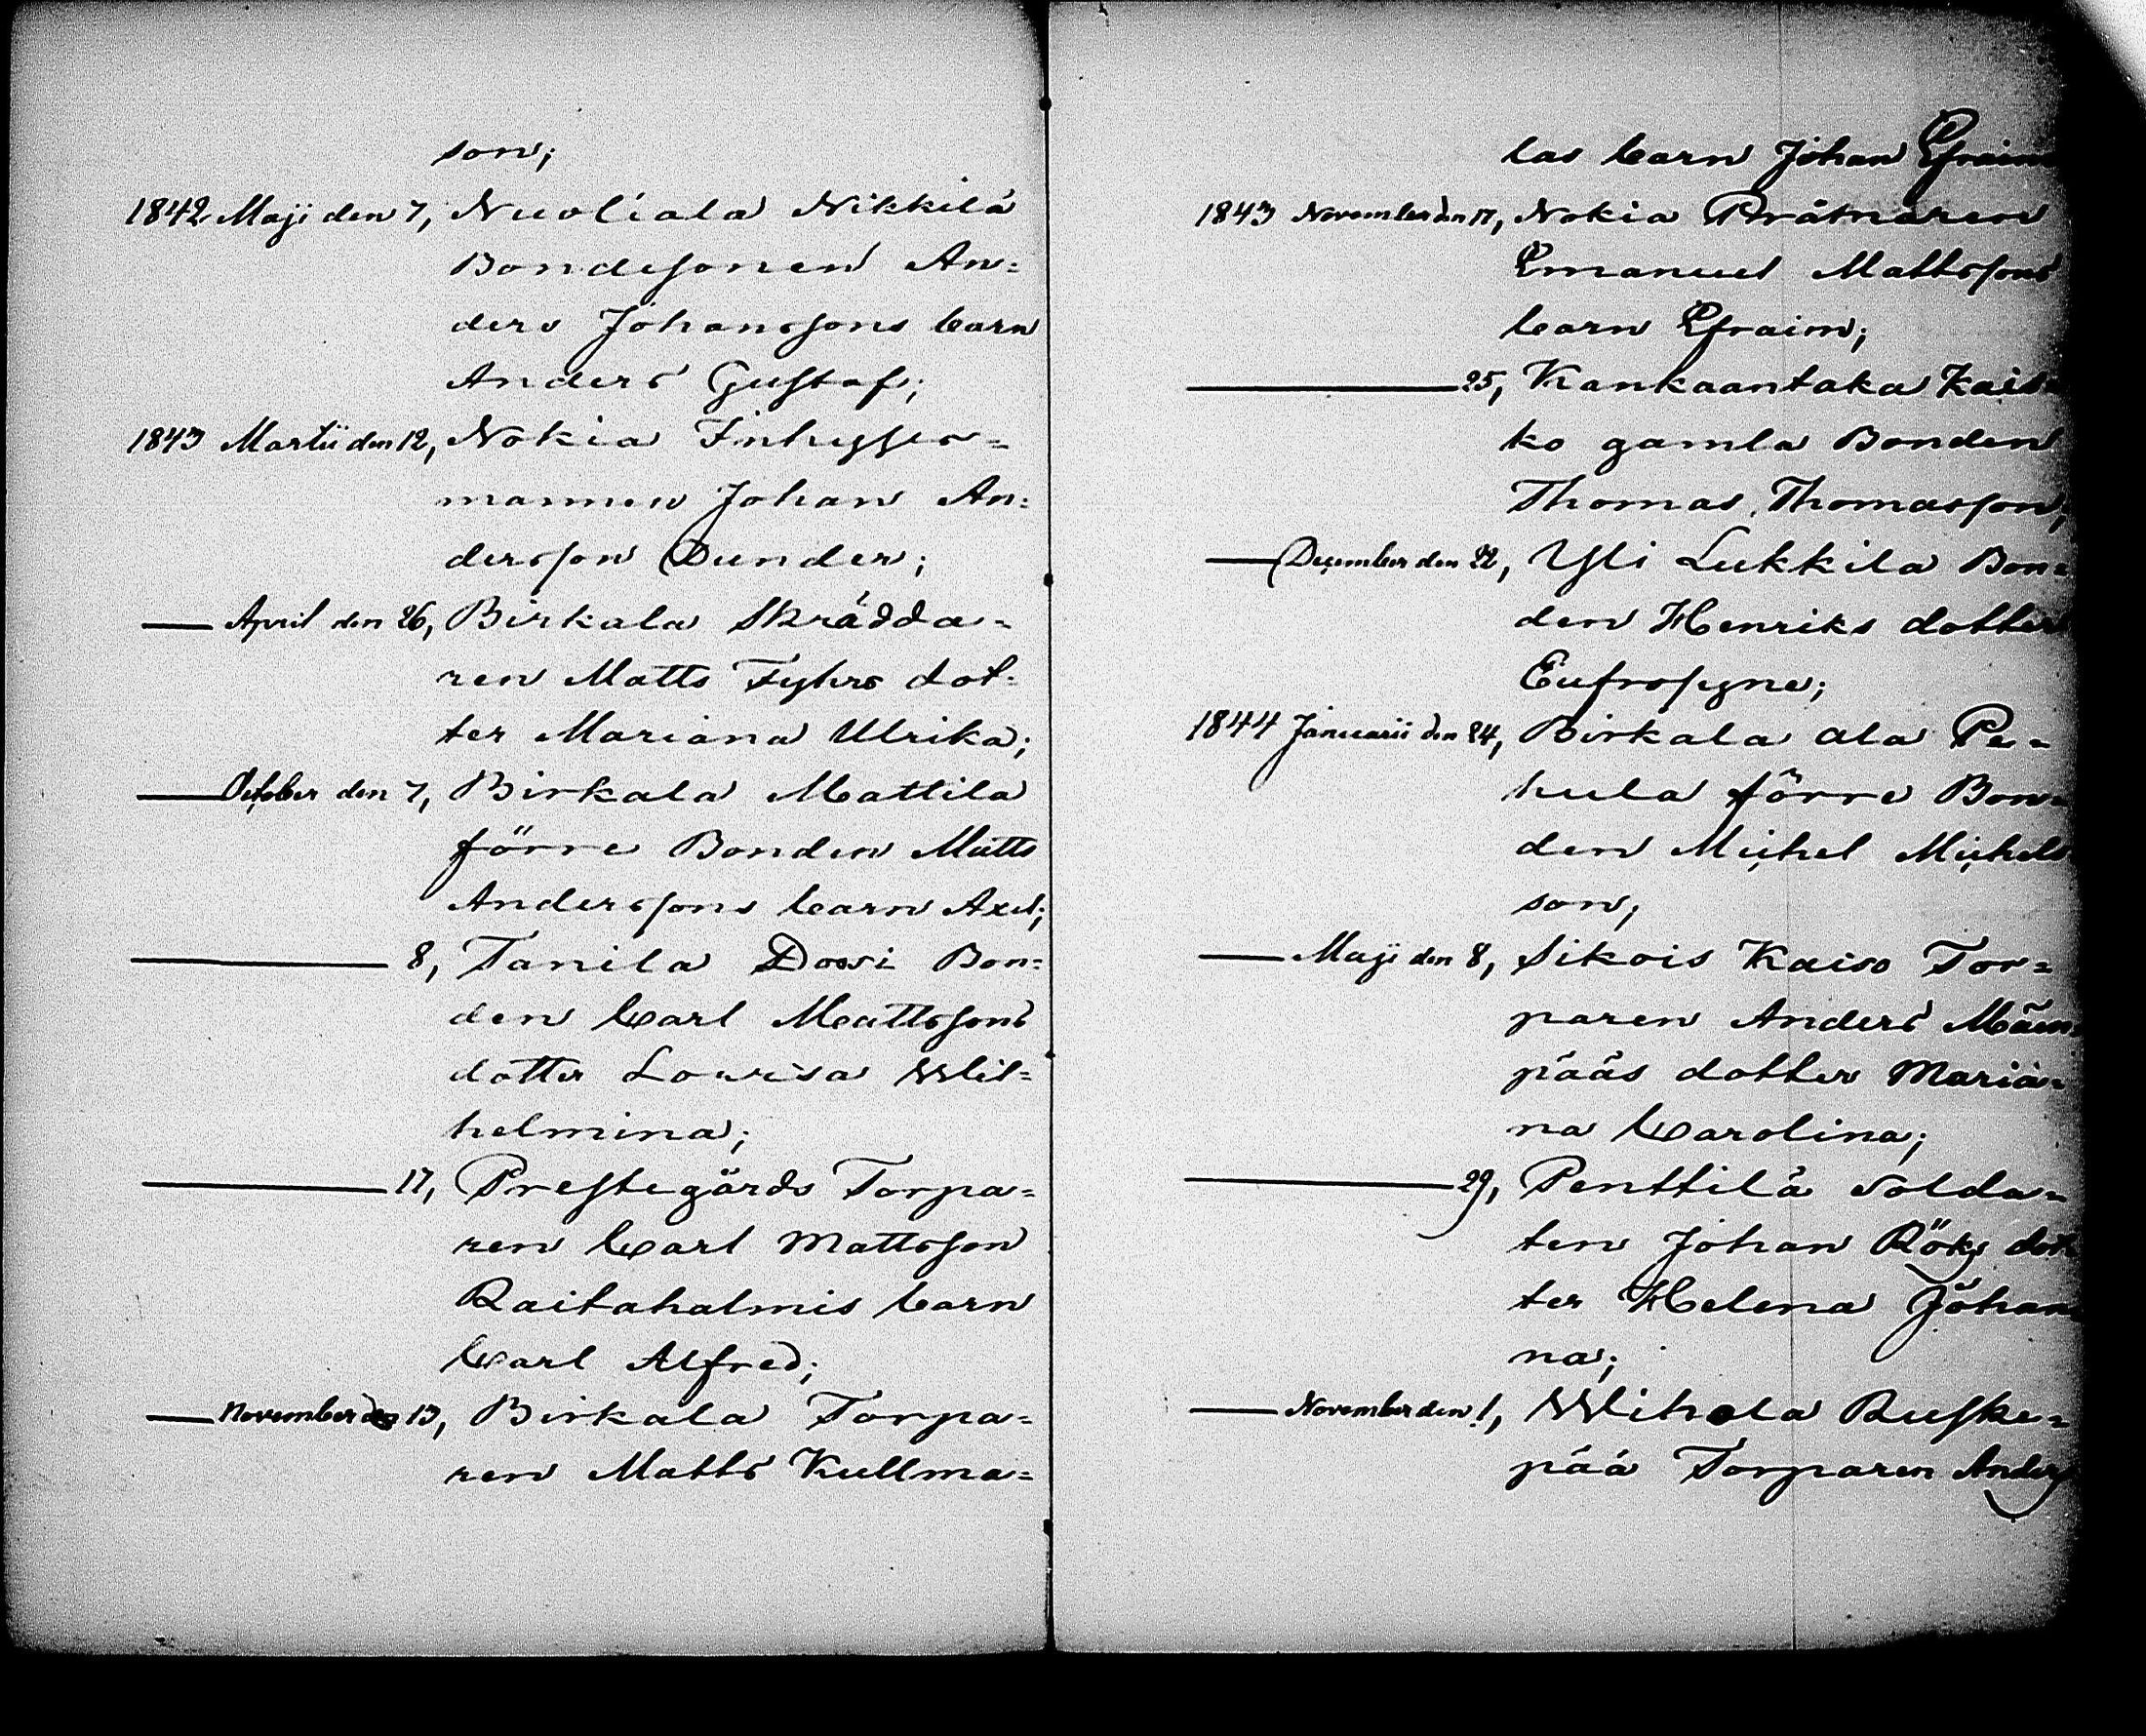 son;
1842 Maji den 7, Nuoliala Nikkilä
Bondesonen An=
ders Johanssons barn
Anders Gustaf;
1843 Martii den 12, Nokia Inhyses=
mannen Johan An=
dersson Dunder;
— April den 26, Birkala Skrädda=
ren Matts Fyhrs dot=
ter Mariana Ulrika;
— October den 7, Birkala Mattila
förre Bonden Matts
Anderssons barn Axel;
— 8, Tanila Dossi Bon=
den Carl Mattssons
dotter Lowisa Wil=
helmina;
— 17, Prestegårds Torpa=
ren Carl Mattsson
Raitahalmis barn
Carl Alfred;
— November den 13, Birkala Torpa=
ren Matts Kullma=
las barn Johan Efraim
1843 November den 17, NokiaRåtnaren
Emanuel Mattssons
barn Efraim;
— 25, Kankaantaka Kais=
ko gamla Bonden
Thomas Thomasson;
— December den 22, Yli Lukkila Bon=
den Henriks dotter
Eufrosyne;
1844 Januarii den 24, Birkala ala Pe=
hula förre Bon=
den Michel Michels
son;
— Maji den 8, Sikois Kaiso Tor=
paren Anders Mäen=
pääs dotter Maria=
na Carolina;
— 29, Penttilä Solda=
ten Johan Röks dot=
ter Helena Johan
na;
— November den 1, Wihola Ruske=
pää Torparen Anders